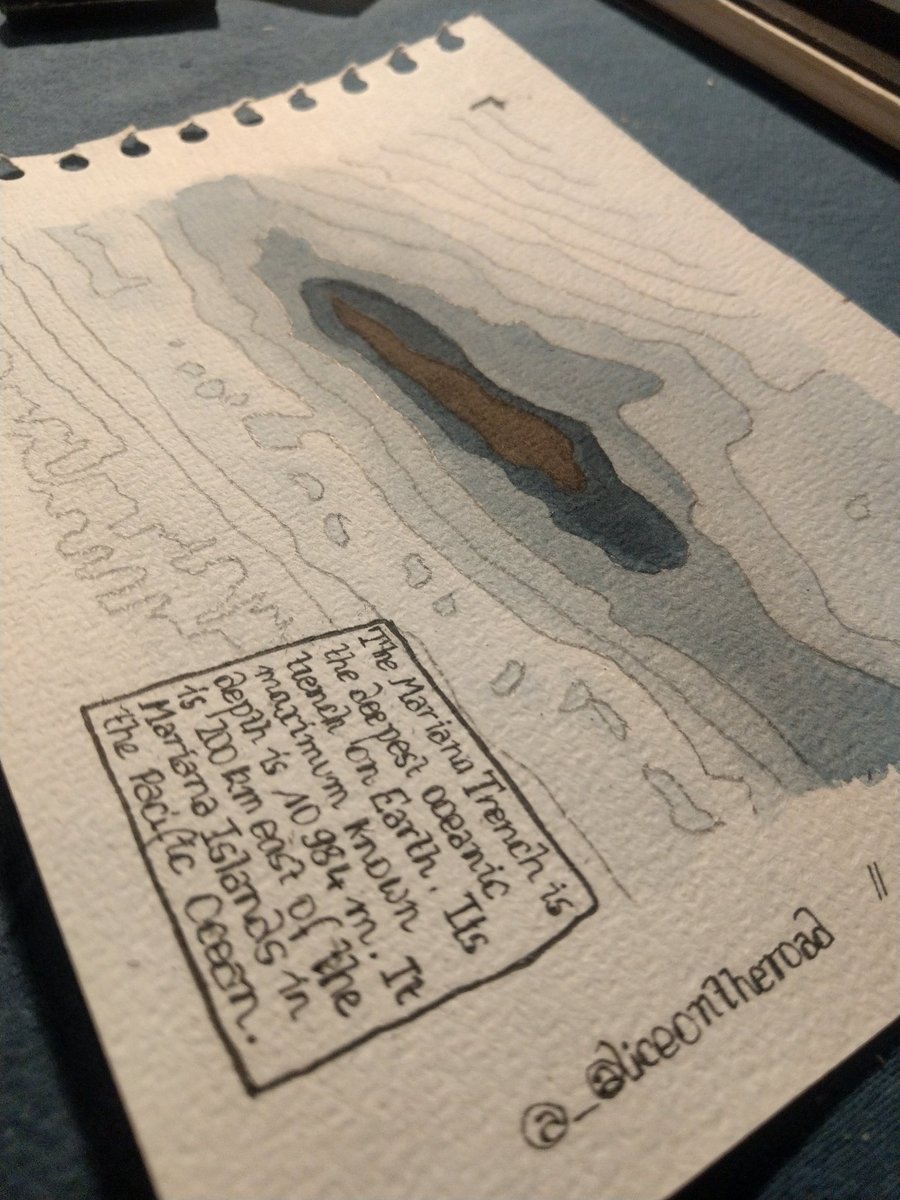 The Mariana Trench is
the deepest oceanic
trench on Earth. Its
maximum known
depth is 10 984 m. It
is 200 km east of the
Mariana Islands in
the Pacific Ocean.
@_aliceontheroad